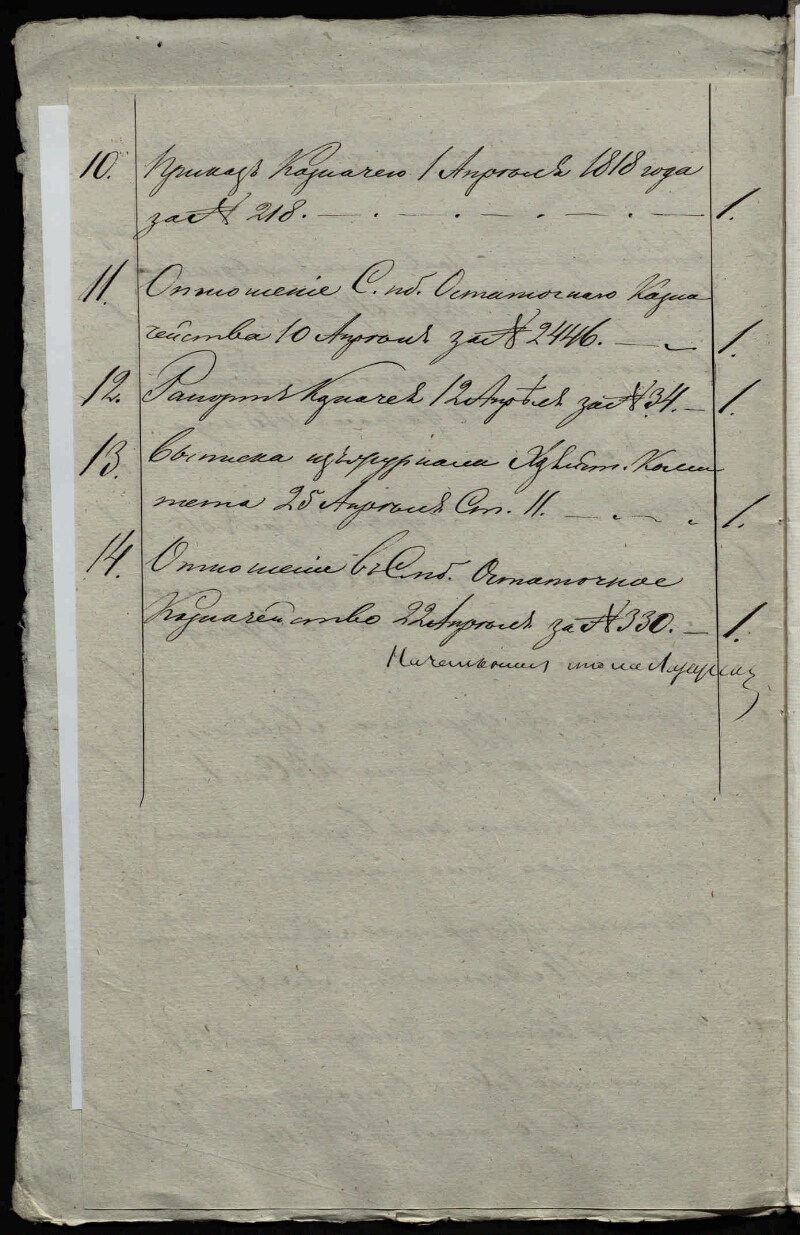 10. Приказъ Казначею 1 Апрѣля 1818 года
за № 218. — . — . — . — . — 1.
11. Отношеніе С. пб. Остаточнаго Казна
чейства 10 Апрѣля за № 2446. — 1.
12. Рапортъ Кзначея 12 Апрѣля за № 34. — 1.
13. Выписка изъ журнала Коми
тета 25 Апрѣля Ст. 11. — 1.
14. Отношеніе въ Спб. Остаточное
Казначейство 22 Апрѣля за № 330. — 1.
Начальникъ стола